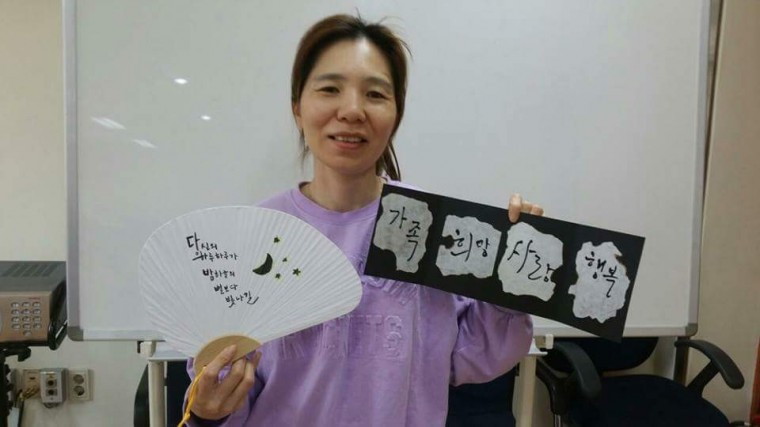 당신의
하루하루가
밤하늘의
별보다
빛나길
가족 희망 사랑 행복